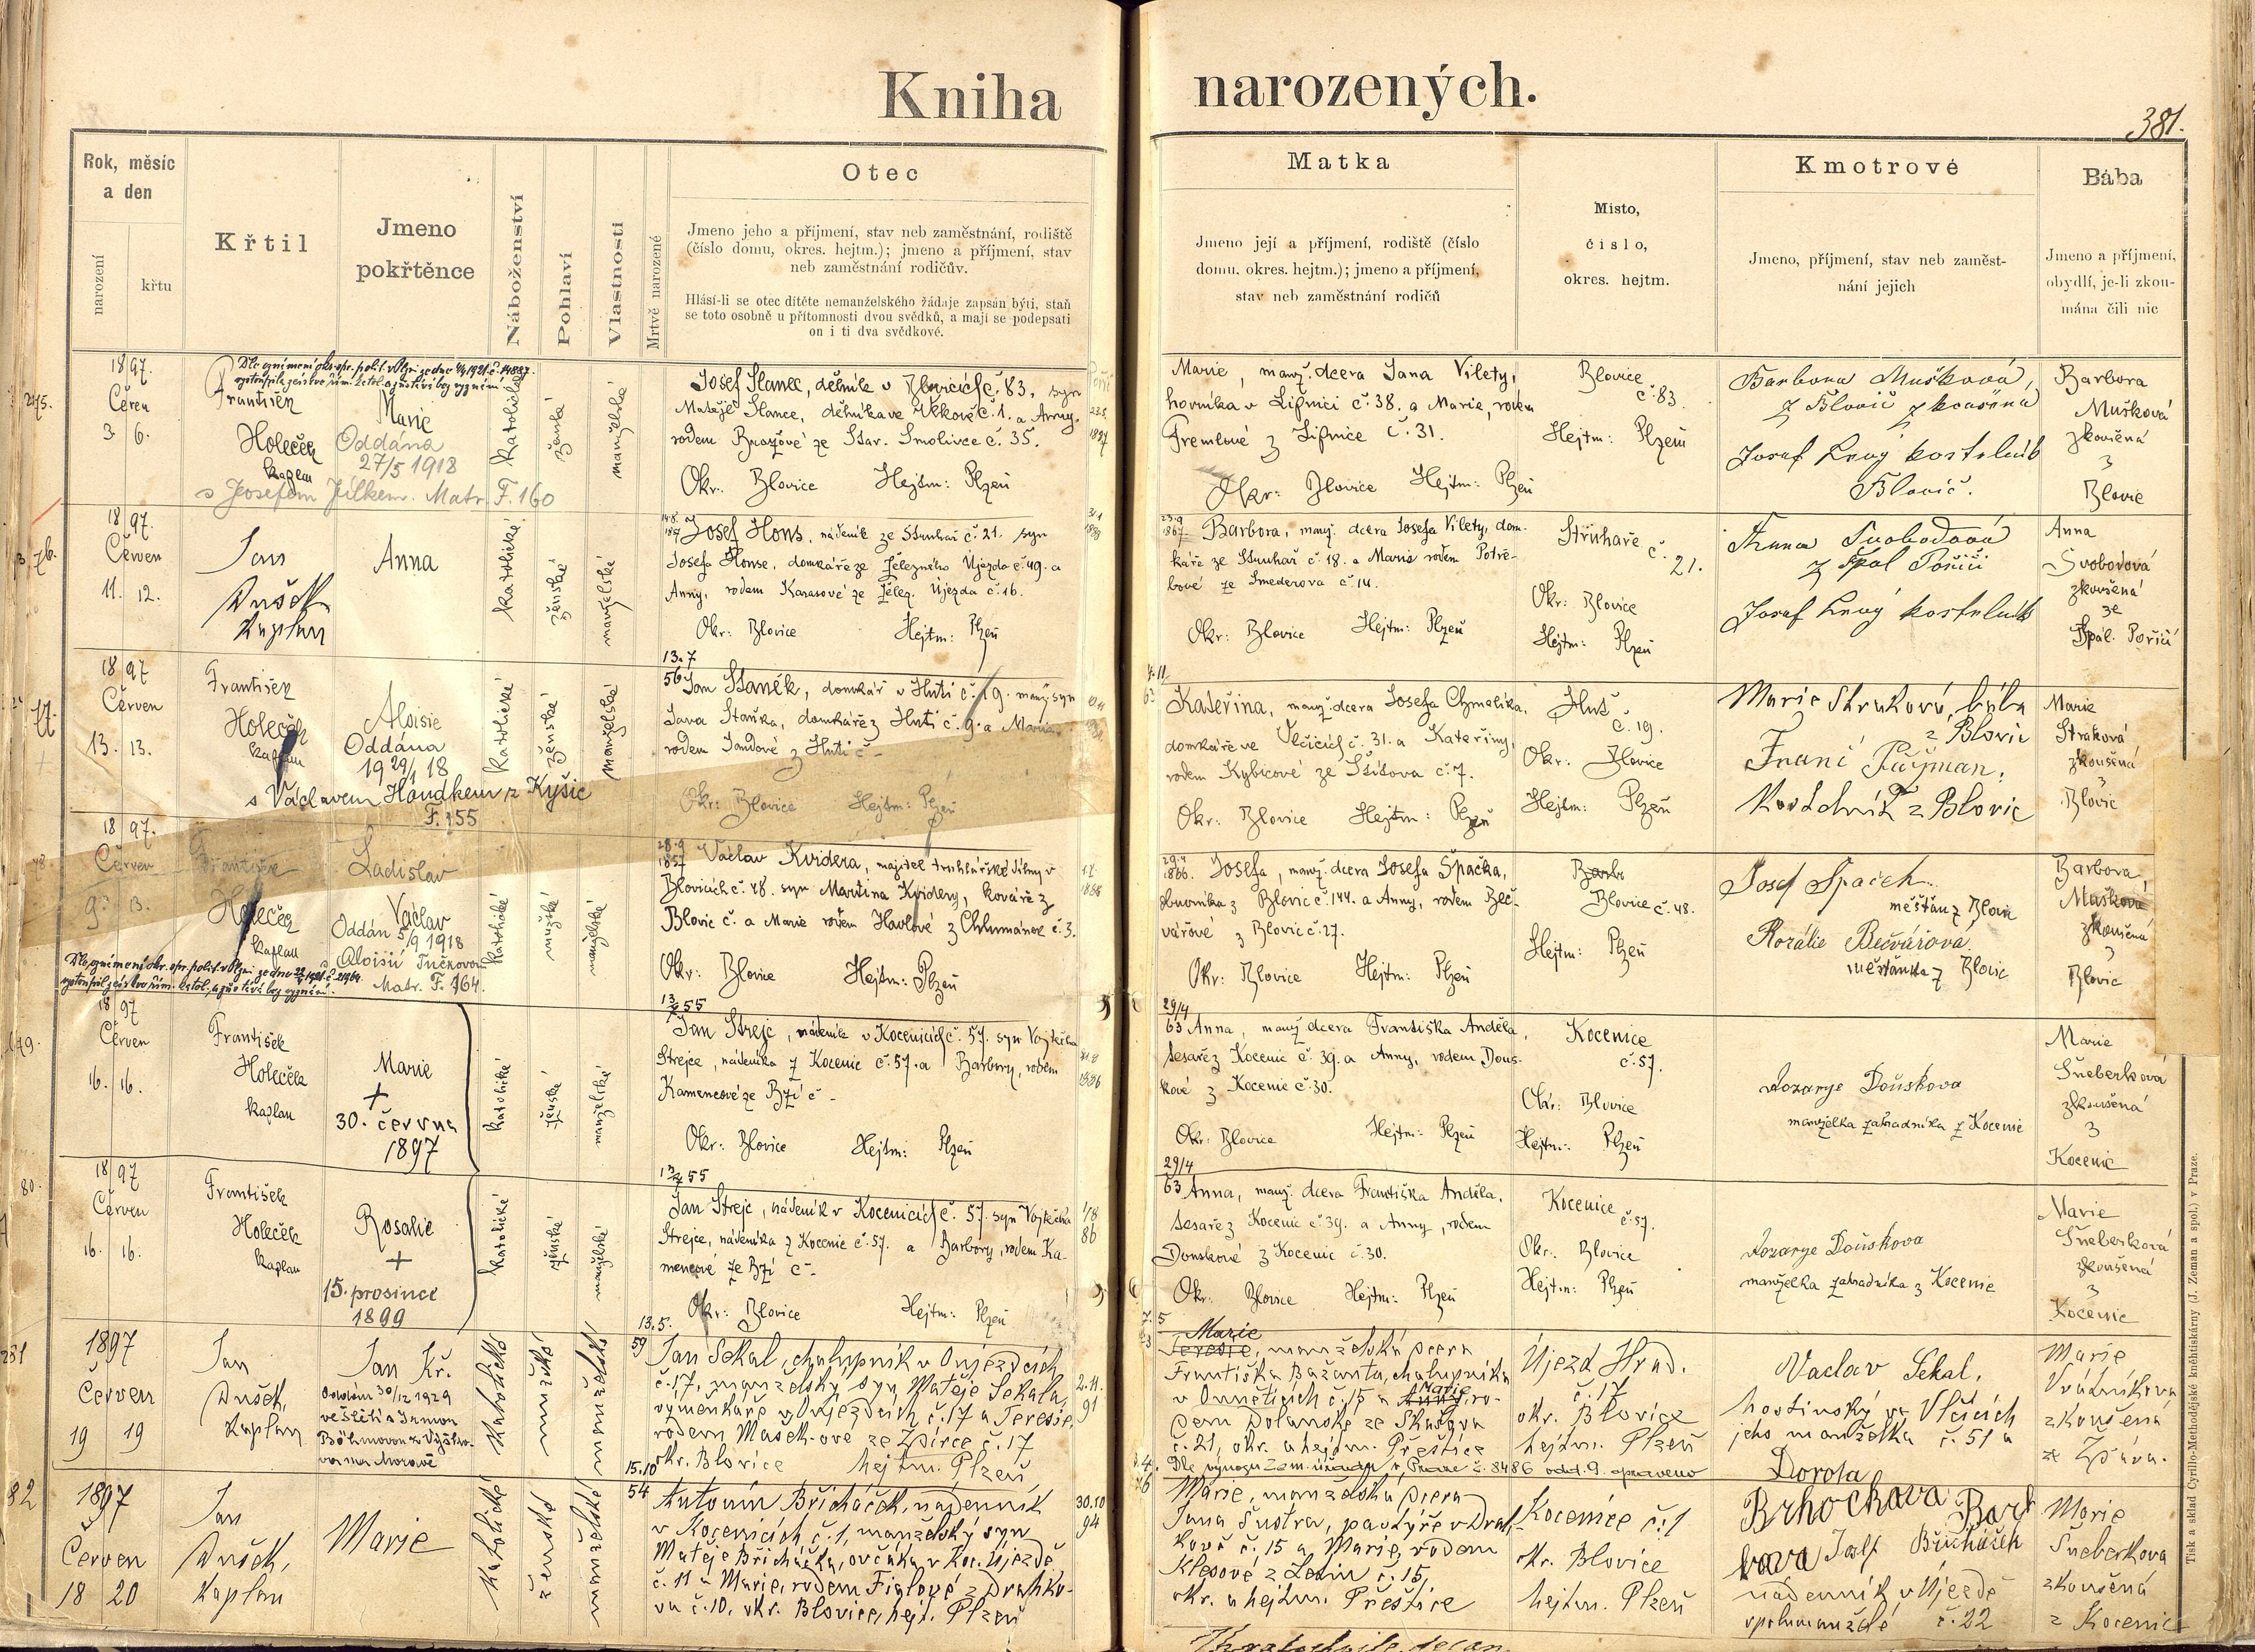 Kniha narozených.
381.
Rok, měsíc
a den
narození
křtu
Křtil
Jmeno
pokřtěnce
Náboženství
Pohlaví
Vlastnosti
Mrtvě narozené
Otec
Jmeno jeho a příjmení, stav neb zaměstnání, rodiště
(číslo domu, okres. hejtm.); jmeno a příjmení, stav
neb zaměstnání rodičův.
Hlásí-li se otec dítěte nemanželského žádaje zapsán býti, staň
se toto osobně u přítomnosti dvou svědků, a mají se podepsati
on i ti dva svědkové.
Matka
Jmeno její a příjmení, rodiště (číslo
domu, okres. hejtm.); jmeno a příjmení,
stav neb zaměstnání rodičů
Místo,
číslo,
okres. hejtm.
Kmotrové
Jmeno, příjmení, stav neb zaměst-
nání jejich
Bába
Jmeno a příjmení,
obydlí, je-li zkou-
šená čili nic
1897.
Červen
3 6.
František
Holeček
kaplan
Marie
Oddána
27/5 1918
s Josefem Jílkem. Matr. F. 160
katolické
ženské
manželské
Josef Slanec, dělník v Blovicích č. 83, syn
Matěje Slance, dělníka ve č. 1. a Anny,
rodem ze Star. Smolivce č. 35.
Okr: Blovice Hejtm: Plzeň
Marie, manž. dcera Jana Vilety,
horníka v Lipnici č. 38. a Marie, rodem
z Lipnice č. 31.
Okr: Blovice Hejtm: Plzeň
Blovice
č. 83.
Hejtm: Plzeň
Barbora Mušková,
z Blovic zkoušená
Josef kostelník
Blovic.
Barbora
Mušková
zkoušená
z
Blovic
76.
1897.
Červen
11. 12.
Jan
Dušek
Kaplan
Anna
katolické
ženské
manželské
Josef Hons, nádeník ze Struhař č. 21. syn
Josefa Honse, domkáře ze Železného Újezda č. 49. a
Anny, rodem Karasové ze Želez. Újezda č. 16.
Okr: Blovice Hejtm: Plzeň
23.9
1867
Barbora, manž. dcera Josefa Vilety, dom-
káře ze Struhař č. 18. a Marie rodem Potře-
bové ze Smederova č. 14.
Okr: Blovice Hejtm: Plzeň
Struhaře
č. 21.
Okr: Blovice
Hejtm: Plzeň
Anna Svobodová
z Spál Poříčí
Josef kostelník
Anna
Svobodová
zkoušená
ze
Spál. Poříčí
77.
1897
Červen
13. 13.
František
Holeček
kaplan
Aloisie
Oddána
19 29/1 18
s Václavem Houdkem z Kyšic
F. 155
katolické
ženské
manželské
13.7
56
Jan Staněk, domkář v Huti č. 19. manž. syn
Jana Staňka, domkáře z Huti č. 9. a Marie
rodem Jandové z Huti č -
Okr: Blovice Hejtm: Plzeň
Kateřina, manž. dcera Josefa Chmelíka,
domkáře ve Vlčicích č. 31. a Kateřiny,
rodem Kybicové ze Štítova č. 7.
Okr: Blovice Hejtm: Plzeň
Huť
č. 19.
Okr: Blovice
Hejtm: Plzeň
Marie Straková, bába
z Blovic
Kostelník z Blovic
Marie
Straková
zkoušená
z
Blovic
78.
1897.
Červen
9. 13.
František
Holeček
kaplan
Ladislav
Václav
Oddán 5/9 1918
s Aloisií Tučkovou
Matr. F. 164.
katolické
mužské
manželské
28.9
1857
Václav Kvidera, majitel truhlářské dílny v
Blovicích č. 48. syn Martina Kvidery, kováře z
Blovic č. a Marie rodem Havlové z Chlumánek č. 3.
Okr: Blovice Hejtm: Plzeň
1866.
Josefa, manž. dcera Josefa Špačka,
z Blovic č. 144. a Anny, rodem Beč-
vářové z Blovic č. 27.
Okr: Blovice Hejtm: Plzeň
Blovice č. 48.
Hejtm: Plzeň
Josef Špaček
měšťan z Blovic
Rozalie Bečvářová
měšťanka z Blovic
Barbora,
Mušková
zkoušená
z
Blovic
79.
1897
Červen
16. 16.
František
Holeček
kaplan
Marie
+
30. června
1897
katolické
ženské
manželské
Jan Strejc, nádeník v Kocenicích č. 57. syn Vojtěcha
Strejce, nádeníka z Kocenic č. 57. a Barbory, rodem
Kamencové ze Bzí č -
Okr: Blovice Hejtm: Plzeň
29/4
63
Anna, manž dcera Františka Anděla,
tesaře z Kocenic č. 39. a Anny, rodem Dous-
kové z Kocenic č. 30.
Okr: Blovice Hejtm: Plzeň
Kocenice
č. 57.
Okr: Blovice
Hejtm: Plzeň
Rozarye Douskova
manželka zahradníka z Kocenic
Marie
Šneberková
zkoušená
z
Kocenic
80.
1897
Červen
16. 16.
František
Holeček
kaplan
Rosalie
+
15. prosince
1899
katolické
ženské
manželské
Jan Strejc, nádeník v Kocenicích č. 57. syn Vojtěcha
Strejce, nádeníka z Kocenic č. 57. a Barbory, rodem Ka-
mencové ze Bzí č -
Okr: Blovice Hejtm: Plzeň
29/4
63
Anna, manž. dcera Františka Anděla,
tesaře z Kocenic č. 39. a Anny, rodem
Douskové z Kocenic č. 30.
Okr: Blovice Hejtm: Plzeň
Kocenice
č. 57.
Okr. Blovice
Hejtm: Plzeň
Rozarye Douskova
manželka zahradníka z Kocenic
Marie
Šneberková
zkoušená
z
Kocenic
281
1897
Červen
19 19
Jan
Dušek,
Kaplan
Jan Kř.
Oddán 30/12 1929
katolické
mužské
manželské
13.5.
59
Jan Sekal, chalupník v Oujezdcích
č. 17, manželský syn Matěje Sekala,
výměnkáře v Oujezdcích č. 17 a Teresie,
rodem Mašek-ové ze Zdírce č. 17
okr. Blovice hejtm. Plzeň
2.11.
91
Marie
Teresie, manželská dcera
Františka Bažanta, chalupníka
v Ounětících č. 15 a Marie ro-
dem Dolanské ze Skašova
č. 21, okr. a hejtm. Přeštice
Dle výnosu Zem. úřadu v Praze č. 8486 odd. 9. opraveno
Újezd Hrad.
č. 17
okr. Blovice
hejtm. Plzeň
Vaclav Sekal,
hostinský ve Vlčicích
jeho manželka č. 51 a
Dorota
Marie
Vrátníkova
zkoušená
ze Zdírce.
82
1897
Červen
18 20
Jan
Dušek,
Kaplan
Marie
katolické
ženské
manželské
15.10
54
Antonín Břicháček, nádenník
v Kocenicích č. 1, manželský syn
Matěje Břicháčka, ovčáka v Koc. Újezdě
č. 11 a Marie, rodem Fialové z Drahko-
va č. 10, okr. Blovice, hejt. Plzeň
30.10
94
Marie, manželská dcera
Jana Šustra, pastýře v Drah-
kově č. 15 a Marie, rodem
Klesové z Letin č. 15,
okr. a hejtm. Přeštice
Kocenice č. 1
okr. Blovice
hejtm. Plzeň
Josef Břicháček
nádenník v Újezdě
č. 22
Marie
Šneberkova
zkoušená
z Kocenic
Tisk a sklad Cyrillo-Methodějské knihtiskárny (J. Zeman a spol.) v Praze.